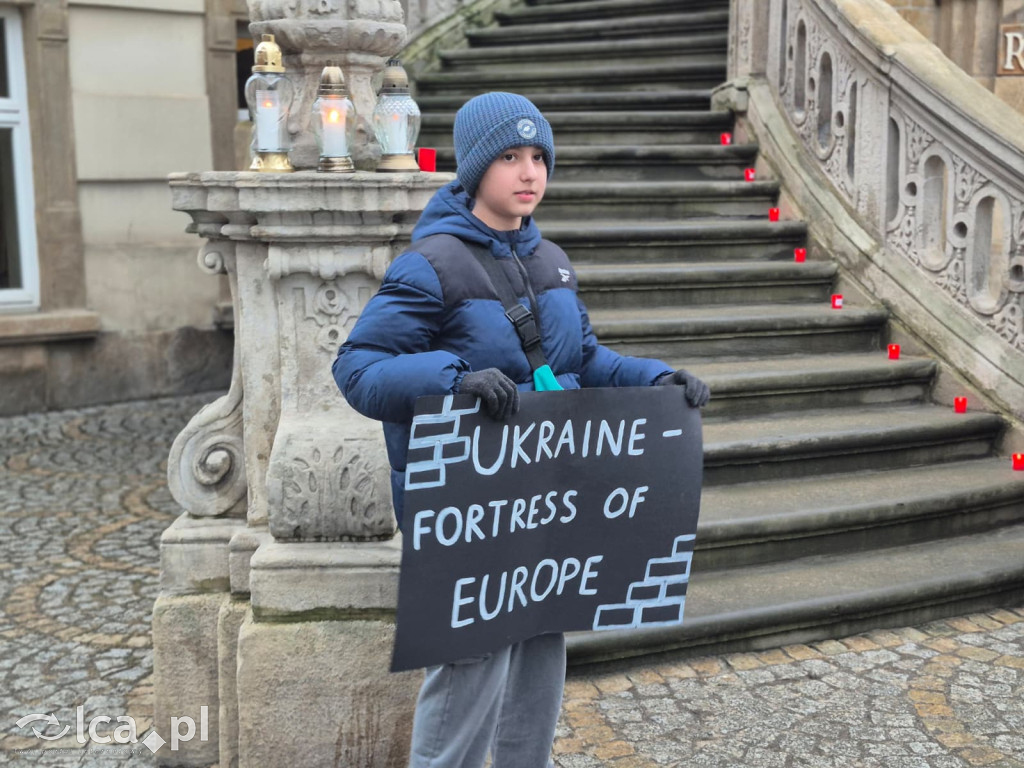 R
UKRAINE -
FORTRESS OF
EUROPE
lca.pl